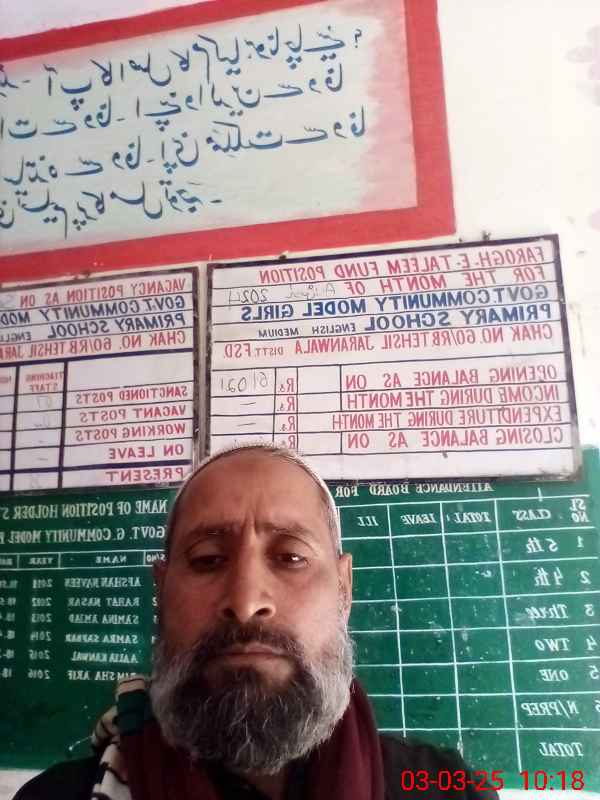 آپ کا اصل کام کیا ہونا چاہیئے؟
سے وفا۔ اپنے والدین سے وفا
سے وفا۔ اپنی مملکت سے وفا
FAROGH.E.TALEEM FUND POSITION
FOR THE MONTH OF August 2024
GOVT.COMMUNITY MODEL GIRLS
PRIMARY SCHOOL ENGLISH MEDIUM
CHAK NO.60/RB TEHSIL JARANWALA DISTT.FSD
OPENING BALANCE AS ON Rs 61021
INCOME DURING THE MONTH Rs —
EXPENDITURE DURING THE MONTH Rs —
CLOSING BALANCE AS ON Rs
VACANCY POSITION AS ON
GOVT.COMMUNITY
PRIMARY SCHOOL ENGLISH
CHAK NO. 60/RB TEHSIL
TEACHING STAFF
SANCTIONED POSTS
VACANT POSTS
WORKING POSTS
ON LEAVE
PRESENT
ATTENDANCE BOARD FOR
SL NO CLASS TOTAL LEAVE ILL
1 5th
2 4th
3 Three
4 TWO
5 ONE
6 N/PREP
TOTAL
NAME OF POSITION HOLDER
GOVT. G. COMMUNITY MODEL
S/NO NAME YEAR
AFSHAN NAVEEN 2011
2 RAHAT NASAR 2012
SAMINA AMJAD 2013
SAMRA SAFDAR 2014
AALIA KANWAL 2015
RIMSHA ARIF 2016
03-03-25 10:18